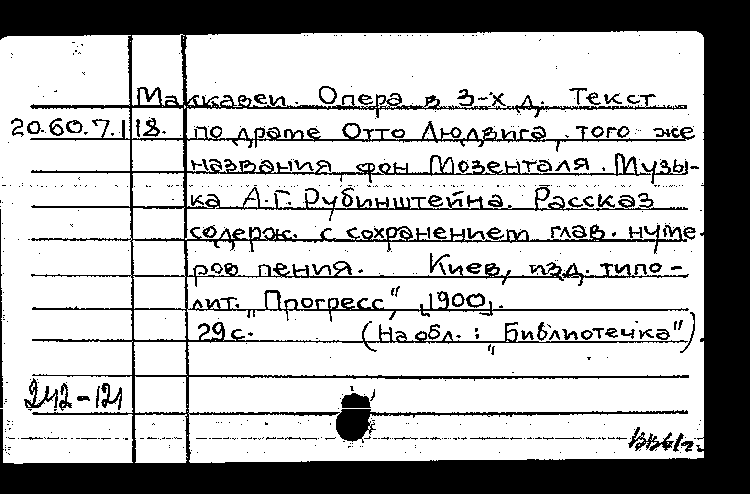 Маккавеи. Опера в 3-х д. Текст
20.60.7.118. по драме Отто Людвига, того же
названия фон Мозенталя. Музы-
ка А.Г. Рубинштейна. Рассказ
содерж. с сохранением глав. нуме-
ров пения. Киев, изд. типо-
лит. "Прогресс", [1900].
29 с. (На обл.: "Библиотечка").
242-121